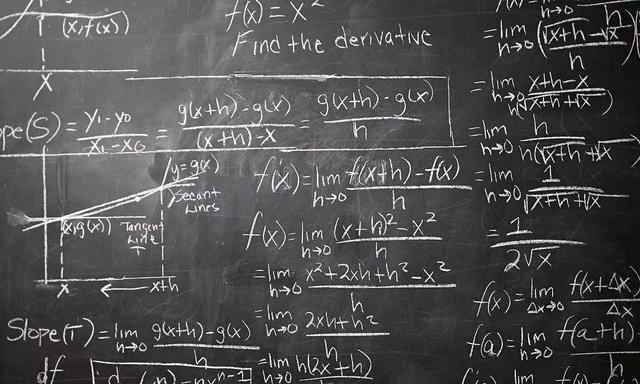 (x, f(x))
x
f(x) = x²
Find the derivative
ope(S) = (y₁-y₀)/(x₁-x₀) = (g(x+h)-g(x))/((x+h)-x) = (g(x+h)-g(x))/h
y=g(x)
Secant
Lines
(x,g(x))
Tangent
Line
T
x ← x+h
Slope(T) = lim h→0 (g(x+h)-g(x))/h
df
f'(x) = lim h→0 (f(x+h)-f(x))/h
f(x) = lim h→0 ((x+h)²-x²)/h
= lim h→0 (x²+2xh+h²-x²)/h
= lim h→0 (2xh+h²)/h
= lim h→0 h(2x+h)
h→0 h
= lim h→0 (√x+h - √x)/h
= lim h→0 (x+h-x)/h(√x+h+√x)
= lim h→0 h/h(√x+h+√x)
= lim h→0 1/(√x+h+√x)
= 1/2√x
f(x) = lim Δx→0 f(x+Δx)/Δx
f(a) = lim h→0 f(a+h)/h